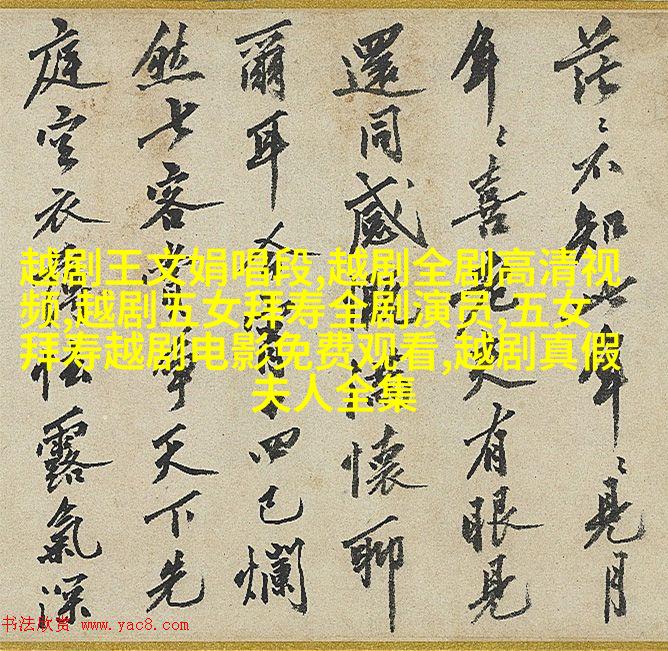 茫〻不知〻年〻見月
年〻喜老夫有眼見
還同感慨清懷聊
爾耳
四已爛
然七客
年天下先
庭空衣
露氣深
越剧王文娟唱段,越剧全剧高清视
频,越剧五女拜寿全剧演员,五女
拜寿越剧电影免费观看,越剧真假
夫人全集
书法欣赏 www.yac8.com